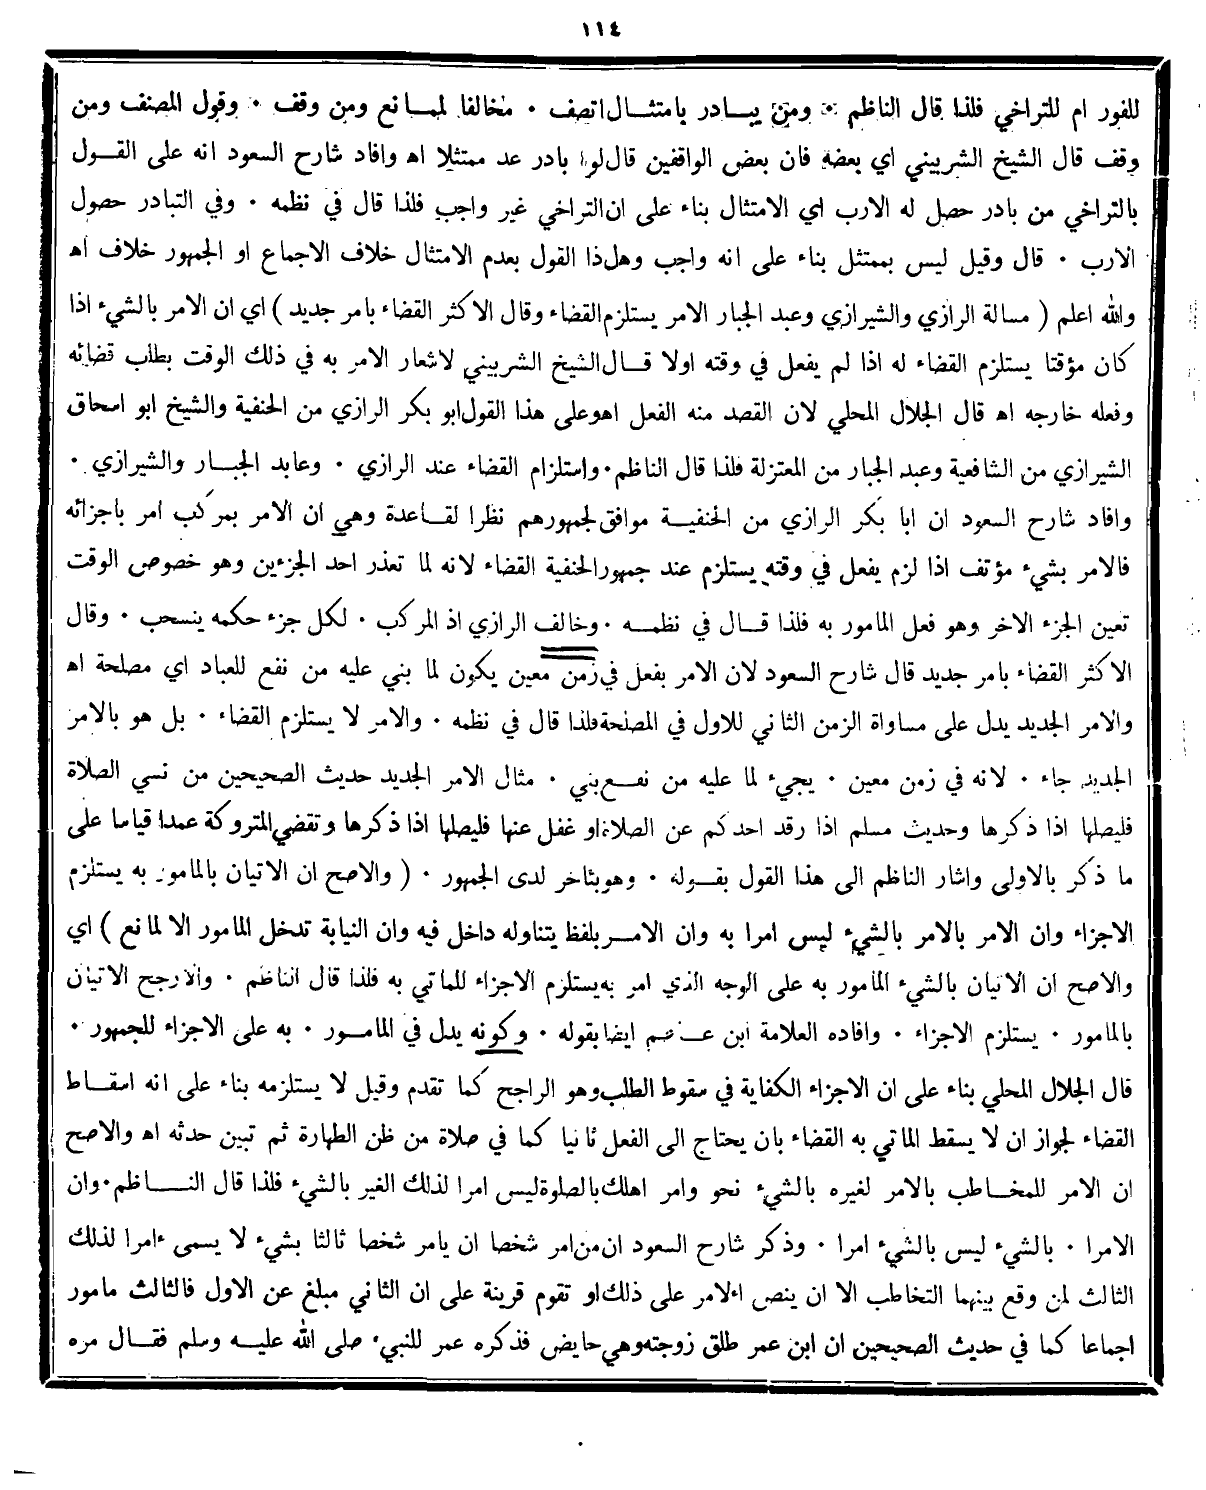 ١١٤
للفور ام للتراخي فلذا قال الناظم ٠ ومن يبادر بامتثال اتصف ٠ مخالفا لمانع ومن وقف ٠ وقول المصنف ومن
وقف قال الشيخ الشربيني اي بعضه فان بعض الواقفين قال لو بادر عد ممتثلا اه وافاد شارح السعود انه على القول
بالتراخي من بادر حصل له الارب اي الامتثال بناء على ان التراخي غير واجب فلذا قال في نظمه ٠ وفي التبادر حصول
الارب ٠ قال وقيل ليس بممتثل بناء على انه واجب وهل ذا القول بعدم الامتثال خلاف الاجماع او الجمهور خلاف اه
والله اعلم ( مسالة الرازي والشيرازي وعبد الجبار الامر يستلزم القضاء وقال الاكثر القضاء بامر جديد ) اي ان الامر بالشيء اذا
كان مؤقتا يستلزم القضاء له اذا لم يفعل في وقته اولا قال الشيخ الشربيني لاشعار الامر به في ذلك الوقت بطلب قضائه
وفعله خارجه اه قال الجلال المحلي لان القصد منه الفعل اه وعلى هذا القول ابو بكر الرازي من الحنفية والشيخ ابو اسحاق
الشيرازي من الشافعية وعبد الجبار من المعتزلة فلذا قال الناظم ٠ واستلزام القضاء عند الرازي ٠ وعابد الجبار والشيرازي ٠
وافاد شارح السعود ان ابا بكر الرازي من الحنفية موافق لجمهورهم نظرا لقاعدة وهي ان الامر بمركب امر باجزائه
فالامر بشيء مؤتف اذا لزم يفعل في وقته يستلزم عند جمهور الحنفية القضاء لانه لما تعذر احد الجزءين وهو خصوص الوقت
تعين الجزء الاخر وهو فعل المامور به فلذا قال في نظمه ٠ وخالف الرازي اذ المركب ٠ لكل جزء حكمه ينسحب ٠ وقال
الاكثر القضاء بامر جديد قال شارح السعود لان الامر بفعل في زمن معين يكون لما بني عليه من نفع للعباد اي مصلحة اه
والامر الجديد يدل على مساواة الزمن الثاني للاول في المصلحة فلذا قال في نظمه ٠ والامر لا يستلزم القضاء ٠ بل هو بالامر
الجديد جاء ٠ لانه في زمن معين ٠ يجيء لما عليه من نفع بني ٠ مثال الامر الجديد حديث الصحيحين من نسي الصلاة
فليصلها اذا ذكرها وحديث مسلم اذا رقد احدكم عن الصلاة او غفل عنها فليصلها اذا ذكرها وتقضي المتروكة عمدا قياسا على
ما ذكر بالاولى واشار الناظم الى هذا القول بقوله ٠ وهو بثاخر لدى الجمهور ٠ ( والاصح ان الاتيان بالمامور به يستلزم
الاجزاء وان الامر بالامر بالشيء ليس امرا به وان الامر بلفظ يتناوله داخل فيه وان النيابة تدخل المامور الا لمانع ) اي
والاصح ان الاتيان بالشيء المأمور به على الوجه الذي امر به يستلزم الاجزاء للماتي به فلذا قال الناظم ٠ والارجح الاتيان
بالمامور ٠ يستلزم الاجزاء ٠ وافاده العلامة ابن عاصم ايضا بقوله ٠ وكونه يدل في المامور ٠ به على الاجزاء للجمهور ٠
قال الجلال المحلي بناء على ان الاجزاء الكفاية في سقوط الطلب وهو الراجح كما تقدم وقيل لا يستلزمه بناء على انه اسقاط
القضاء لجواز ان لا يسقط الماتي به القضاء بان يحتاج الى الفعل ثانيا كما في صلاة من ظن الطهارة ثم تبين حدثه اه والاصح
ان الامر للمخاطب بالامر لغيره بالشيء نحو وامر اهلك بالصلوة ليس امرا لذلك الغير بالشيء فلذا قال الناظم ٠ وان
الامرا ٠ بالشيء ليس بالشيء امرا ٠ وذكر شارح السعود ان من امر شخصا ان يامر شخصا ثالثا بشيء لا يسمى ءامرا لذلك
الثالث لمن وقع بينهما التخاطب الا ان ينص اءلامر على ذلك او تقوم قرينة على ان الثاني مبلغ عن الاول فالثالث مامور
اجماعا كما في حديث الصحيحين ان ابن عمر طلق زوجته وهي حايض فذكره عمر للنبيء صلى الله عليه وسلم فقال مره